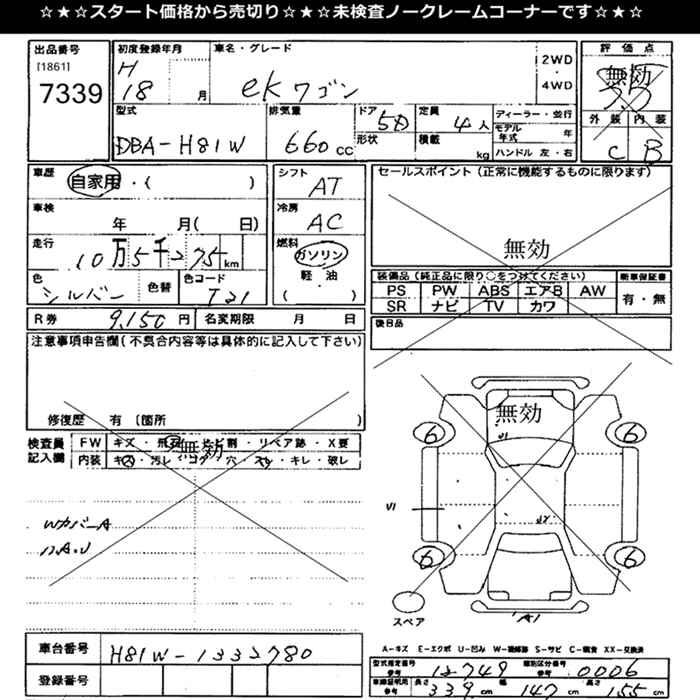 ☆★☆★スタート価格から売切り☆★☆★未検査ノークレームコーナーです☆★☆
出品番号
[1861]
7339
初度登録年月
H
18 月
車名・グレード
eKワゴン
2WD
・
4WD
評価点
無効
外装 内装
C B
型式
DBA-H81W
排気量
660cc
ドア
5D
形状
定員
4人
積載
kg
ディーラー・並行
モデル年式 年
ハンドル 左・右
車歴
自家用・( )
車検
年 月( 日)
走行
10万5千275km
色
シルバー
色替
色コード
T21
シフト
AT
冷房
AC
燃料
ガソリン
軽・油
( )
セールスポイント(正常に機能するものに限ります)
無効
装備品(純正品に限り○をつけてください)
PS PW ABS エアB AW
SR ナビ TV カワ
新車保証書
有・無
後日品
R券 9,150円
名変期限 月 日
注意事項申告欄(不具合内容等は具体的に記入して下さい)
修復歴 有 (箇所
検査員
記入欄
FW キズ・飛石・ヒビ割・リペア跡・X要
内装 キズ・汚レ・コゲ・穴・スレ・キレ・破レ
無効
WカバーA
無効
6 6
U1
6 6
スペア
A1
車台番号
H81W-1332780
登録番号
A-キズ E-エクボ U-凹み W-補修跡 S-サビ C-腐食 XX-交換済
型式指定番号
参考
12749
類別区分番号
参考
0006
車検証明用
参考
長さ 339cm
幅 147cm
高さ 155cm